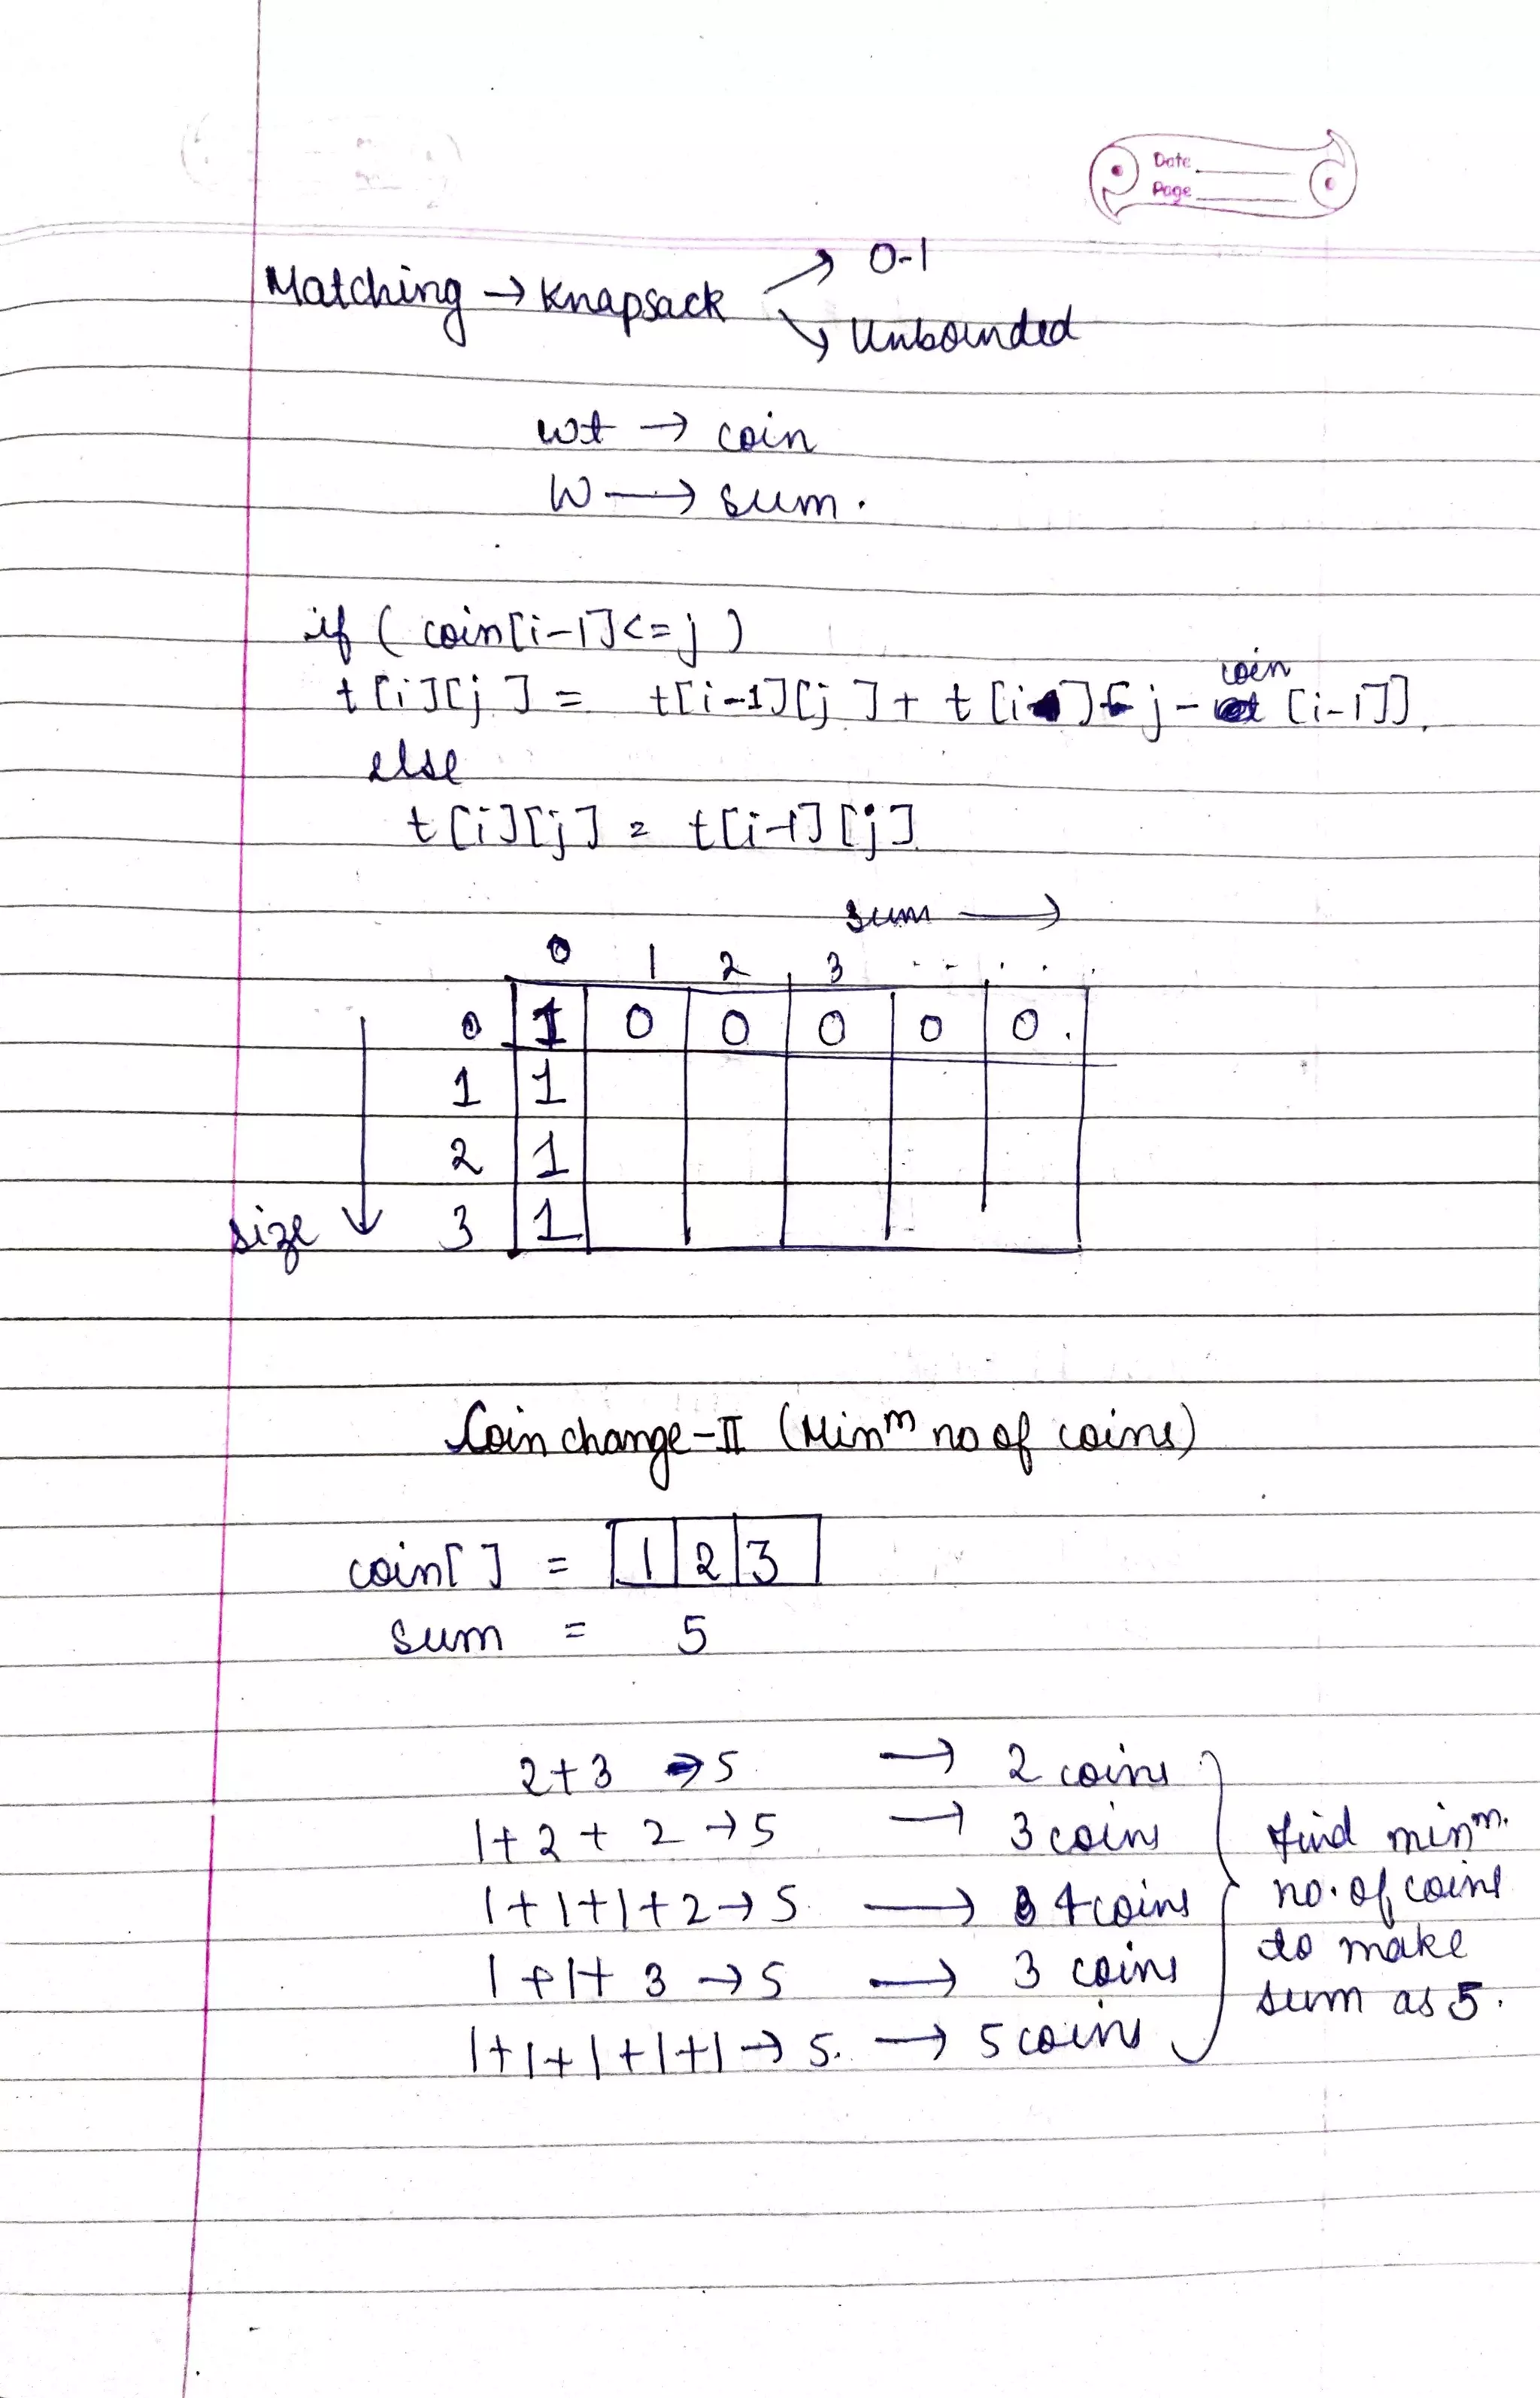 Date
Page
Matching → Knapsack ↗ 0-1
↘ Unbounded
wt → coin
W → sum.
if ( coin[i-1]<=j )
t[i][j] = t[i-1][j] + t[i][j-coin[i-1]]
else
t[i][j] = t[i-1][j]
sum →
0 1 2 3 .....
0 1 0 0 0 0 0.
1 1
2 1
size ↓ 3 1
Coin change-II (Minᵐ no of coins)
coin[ ] = 1 2 3
sum = 5
2+3 → 5 → 2 coins
1+2+2→5 → 3 coins
1+1+1+2→5 → 4 coins
1+1+3→5 → 3 coins
1+1+1+1+1→5. → 5 coins
find minᵐ.
no. of coins
to make
sum as 5.